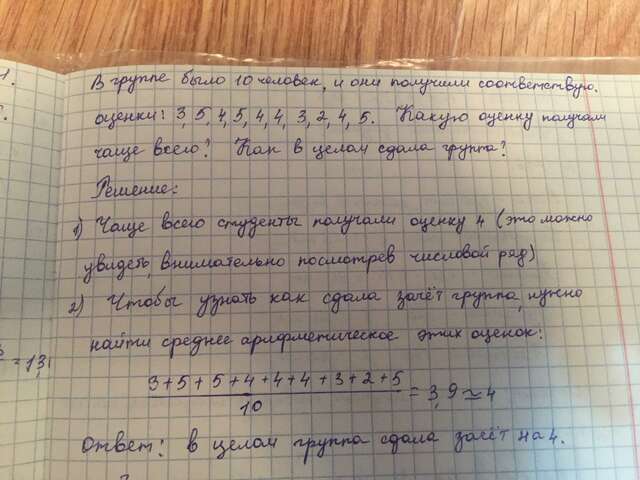 1.
В группе было 10 человек, и они получили соответствую.
оценки: 3, 5, 4, 5, 4, 4, 3, 2, 4, 5. Какую оценку получали
чаще всего? Как в целом сдала группа?
Решение:
1) Чаще всего студенты получали оценку 4 (это можно
увидеть, внимательно посмотрев числовой ряд)
2) Чтобы узнать как сдала зачёт группа, нужно
найти среднее арифметическое этих оценок:
= 13,
3+5+5+4+4+4+3+2+5
10
= 3,9 ≃ 4
Ответ: в целом группа сдала зачёт на 4.